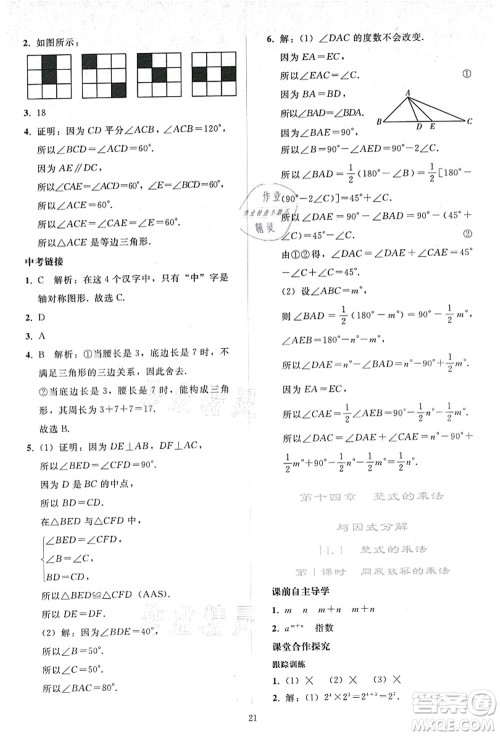 2. 如图所示：
3. 18
4. 证明：因为 CD 平分∠ACB，∠ACB=120°，
所以∠BCD=∠ACD=60°.
因为 AE∥DC，
所以∠CAE=∠ACD=60°，
∠E=∠BCD=60°.
所以∠ACE=∠CAE=∠E=60°.
所以△ACE 是等边三角形.
中考链接
1. C 解析：在这 4 个汉字中，只有“中”字是
轴对称图形. 故选 C.
2. D
3. A
4. B 解析：①当腰长是 3，底边长是 7 时，不
满足三角形的三边关系，因此舍去.
②当底边长是 3，腰长是 7 时，能构成三角
形，则其周长为 3+7+7=17.
故选 B.
5.（1）证明：因为 DE⊥AB，DF⊥AC，
所以∠BED=∠CFD=90°.
因为 D 是 BC 的中点，
所以 BD=CD.
在△BED 与△CFD 中，
∠BED=∠CFD，
∠B=∠C，
BD=CD，
所以△BED≌△CFD (AAS).
所以 DE=DF.
（2）解：因为∠BDE=40°，
所以∠B=50°.
所以∠C=50°.
所以∠BAC=80°.
6. 解：（1）∠DAC 的度数不会改变.
因为 EA=EC，
所以∠EAC=∠C. ①
因为 BA=BD，
A
B D E C
所以∠BAD=∠BDA.
所以∠BAD=1/2[180°-∠B]=1/2[180°-
(90°-2∠C)]=45°+∠C.
所以∠DAE=90°-∠BAD=90°-
(45°+∠C)=45°-∠C. ②
由①②得，∠DAC=∠DAE+∠CAE=
45°-∠C+∠C=45°.
（2）设∠ABC=m°，
则∠BAD=1/2(180°-m°)=90°-1/2m°，
∠AEB=180°-n°-m°.
所以∠DAE=n°-∠BAD=n°-90°+1/2m°.
因为 EA=EC，
所以∠CAE=1/2∠AEB=90°-1/2n°-1/2m°.
所以∠DAC=∠DAE+∠CAE=n°-
90°+1/2m°+90°-1/2n°-1/2m°=1/2n°.
第十四章 整式的乘法
与因式分解
14.1 整式的乘法
第 1 课时 同底数幂的乘法
课前自主导学
1. m n m+n m+n
2. aᵐ⁺ⁿ 指数
课堂合作探究
跟踪训练
1.（1）×（2）×（3）×（4）×
21
作业
作业检查小助手
精灵
作业精灵
作业精灵
答案圈
MXQE.COM